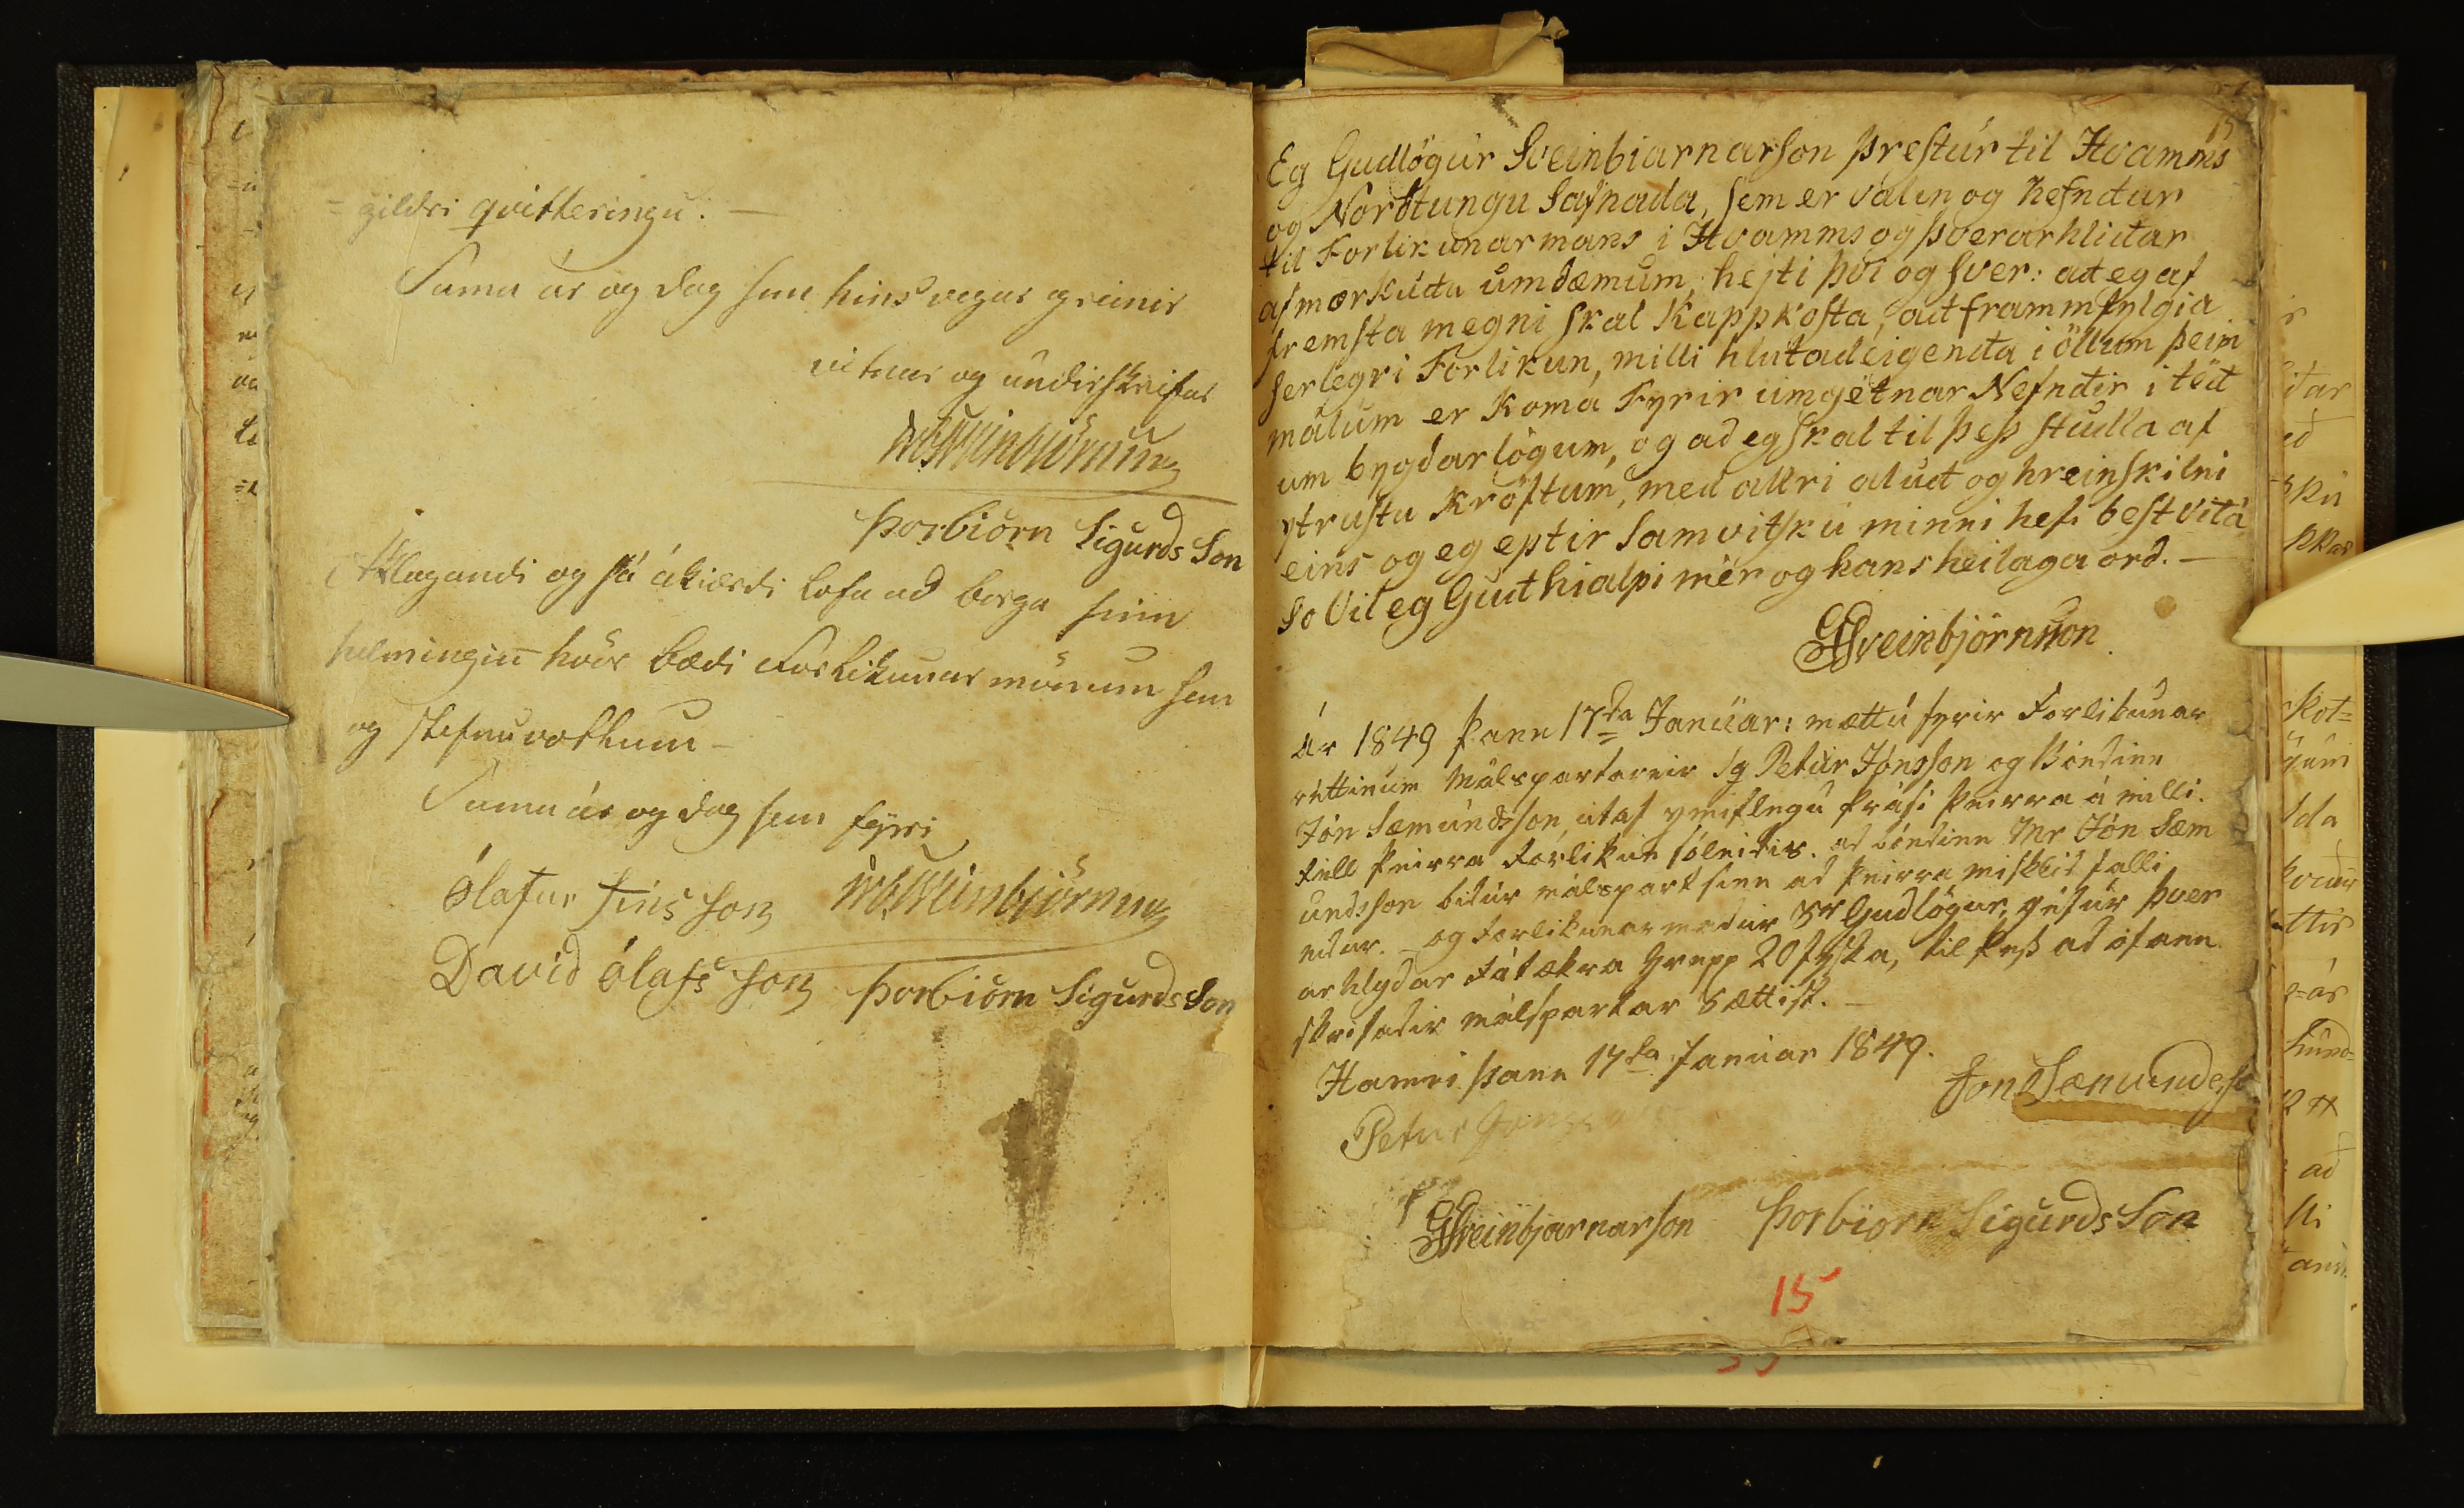 = gildri qvitteringu. —
Sama ár og dag sem hins vegar greinir
vitnar og undirskrifar
Þorbiörn Sigurds Son
Klagandi og sá ákiærdi lofa ad borga sinn
helmingin hvör bædi Forlikunar mönum sem
og stefnuvottum —
Sama ár og dag sem fyrri
Ólafur Fins son
David Ólafs son Þorbiörn Sigurds Son
15
Eg Gudlögur Sveinbiarnarson Prestur til Hvamms
og Nordtungu Safnada, sem er valin og nefndur
til Forlikunarmans i Hvamms og Þverarhlidar
afmörkudu umdæmum, hejti þvi og sver: ad eg af
fremsta megni skal Kappkosta, ad frammfylgia
serlegri Forlikun, milli hlutadeigenda i öllum þeim
málum er Koma Fyrir umgetnar Nefndir i téd
um bygdarlögum, og ad eg skal til þess studla af
ytrustu Kröftum, med allri alud og hreinskilni
eins og eg eptir Samvitsku minni hefi best vitá
so Vil eg Gud hialpi mér og hans heilaga ord. —
GSveinbjörnsson
Ár 1849 þann 17da Januar: mættu fyrir Forlikunar
réttinum Málspartarnir Sg Petur Jónsson og Bóndinn
Jón Sæmundsson, útaf ymislegu þrasi þeirra á milli.
Féll þeirra Forlikun soleidis. ad bóndinn Mr Jón Sæm
undsson bidur málspart sinn ad þeirra misklid falli
nidur. — og Forlikunarmadur Sr Gudlögur, géfur Þver
arhlydar Fátækra Hrepp 20 fyska, til þess ad ofann
skrifadir málspartar Sættist. —
Hamri þann 17da Januar 1849.
Jón Sæmundsso
Petur Jónsson
GSveinbjarnarson Þorbiorn Sigurds Son
15